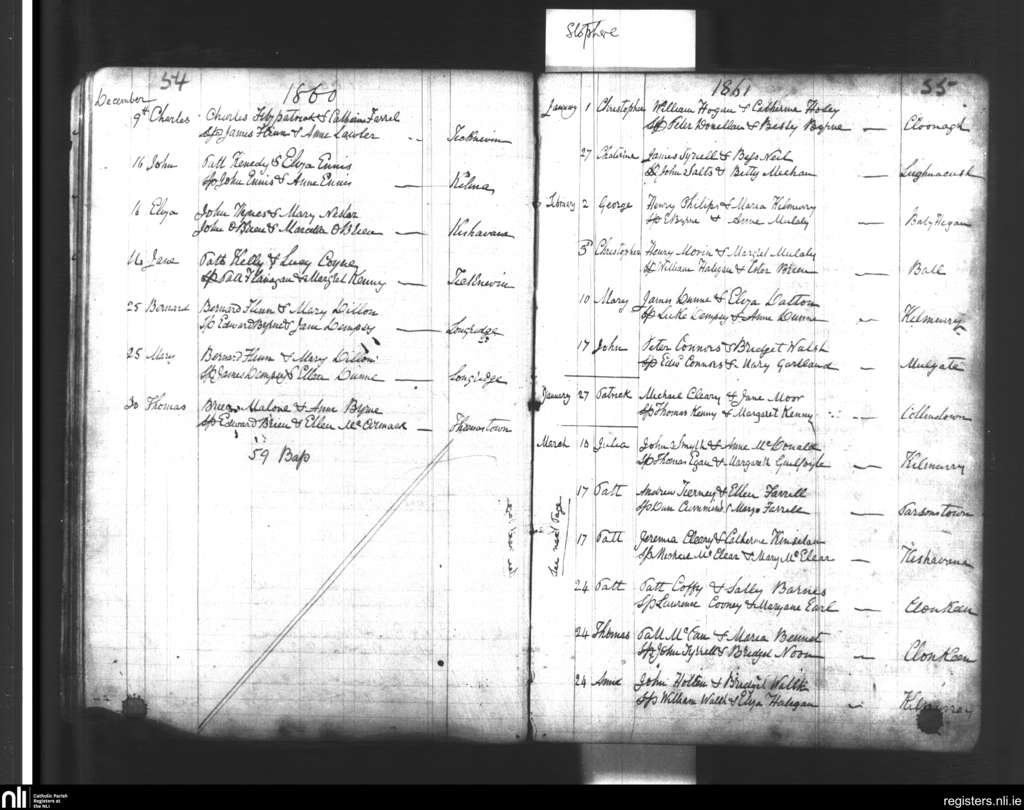 Slophere
54
1860
December
9th Charles Charles Fitzpatrick & Catherin Farrel
Sp James Flinn & Anne Lawler Ticknevin
16 John Patt Kenedy & Eliza Ennis
Sp John Ennis & Anne Ennis Kilma
16 Eliza John Hynes & Mary Nestor
John O'Brien & Marcella O'Brien Kishavana
16 Jane Patt Kelly & Lucy Coyne
Sp Patt Flanagan & Margret Kenny Ticknevin
25 Bernard Bernard Flinn & Mary Dillon
Sp Edward Byrne & Jane Dempsy Longridge
25 Mary Bernard Flinn & Mary Dillon
Sp James Dempsy & Ellen Dunne Longridge
30 Thomas Malone & Ann Byrne
Sp Edward Brien & Ellen McCormack Thomastown
59 Bap
1861
55
January 1 Christopher William Hogan & Catherine Holey
Sp Peter Donellan & Bessy Byrne Cloonagh
27 Catrine James Tyrell & Bess Neil
Sp John Salts & Betty Meehan
February 2 George Henry Philips & Maria Kilmurry
Sp Byrne & Anne Mulaly
3 Christopher Henry Morin & Margret Mulaly
Sp William Haligan & Ester Brien Ball
10 Mary James Dunne & Eliza Dalton
Sp Luke Dempsy & Anne Dunne Kilmurry
17 John Peter Connors & Bridget Walsh
Sp Edwd Connors & Mary Gartland Mulgate
January 27 Patrick Michael Cleary & Jane Moor
Sp Thomas Kenny & Margaret Kenny Collinstown
March 10 Julia John Smyth & Anne McDonald
Sp Thomas Egan & Margareth Guilfoyle Kilmurry
17 Patt Andrew Tierney & Ellen Farrell
Sp Cummins & Margt Farrell Parsonstown
See next Page
17 Patt Jeremia Cleary & Catherine Kinselan
Sp Michael McClear & Mary McClear Kishavana
24 Patt Patt Coffy & Sally Barnes
Sp Lawrence Cooney & Maryane Earl Clonkeen
24 Thomas Patt McCan & Maria Bennet
Sp John Tyrrell & Bridget Noon Clonkeen
24 Anne John Holten & Bridget Walsh
Sp William Walsh & Eliza Haligan Kilmurray
nli
Catholic Parish
Registers at
the NLI
registers.nli.ie